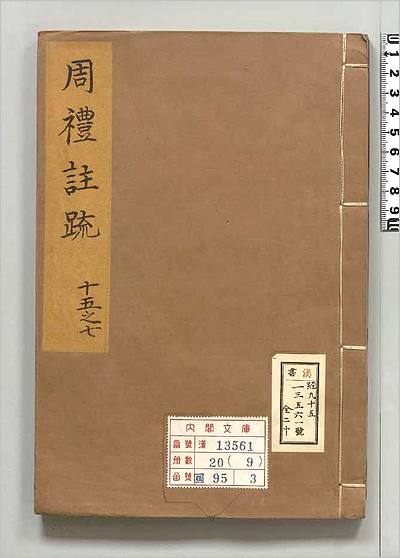 周禮註疏
十五之七
漢書
經九十五
一三五六一號
全二十
内閣文庫
番號 漢 13561
冊數 20(9)
函號 95 3
1 2 3 4 5 6 7 8 9